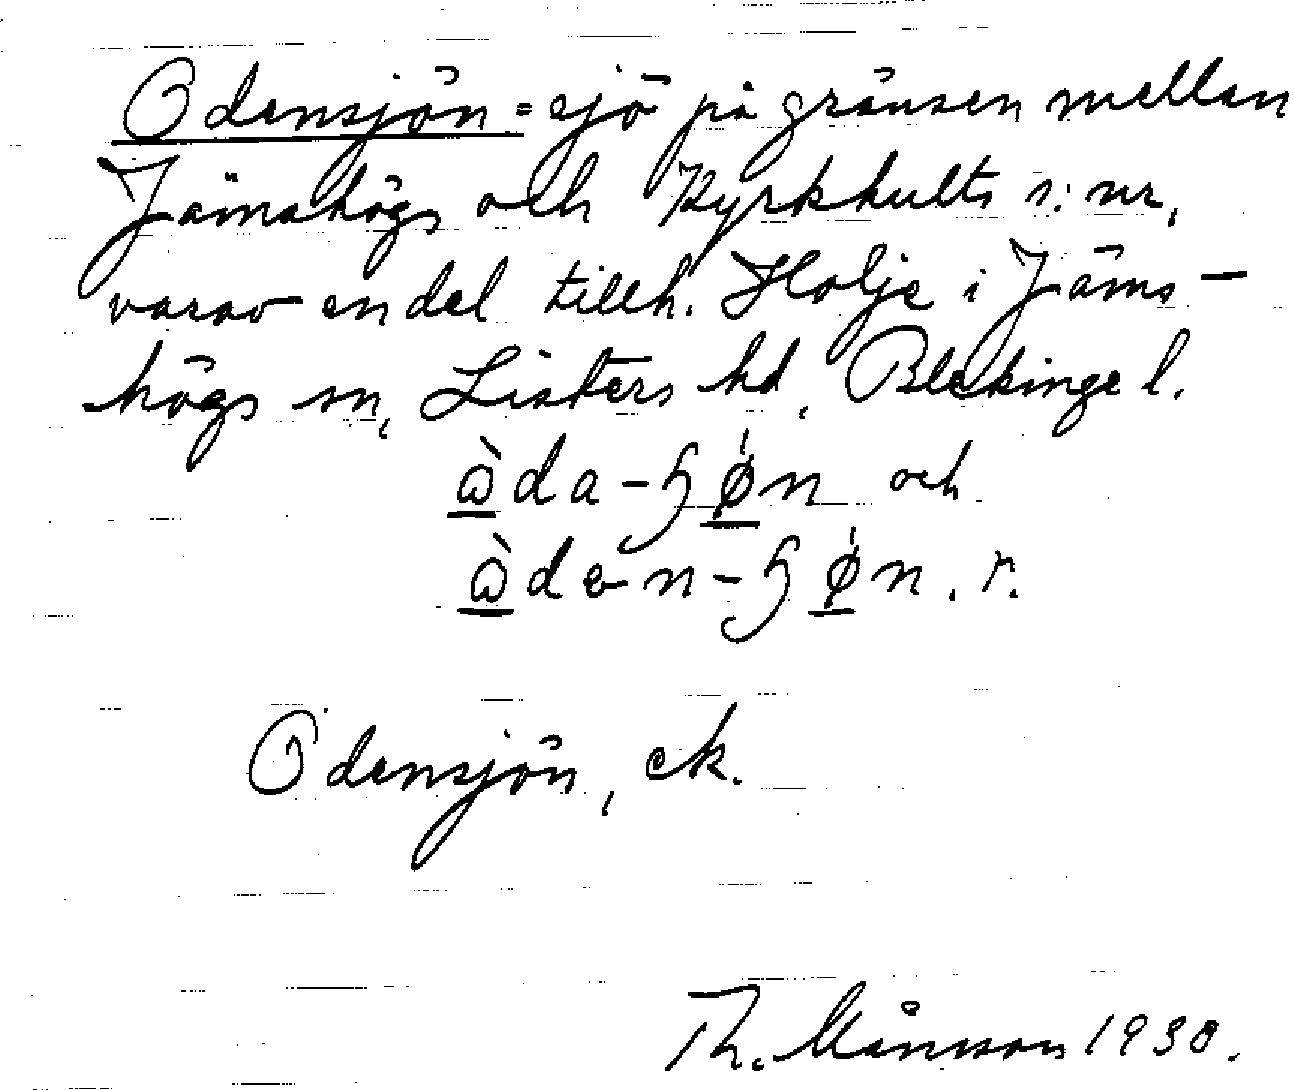 Odensjön = sjö på gränsen mellan
Jämshögs och Kyrkhults s:nr,
varav en del tillh. Holje i Jäms-
högs sn, Listers hd, Blekinge l.
ὼda-ɧǿn och
ὼdən-ɧǿn. r.
Odensjön, ek.
Th. Månsson 1930.